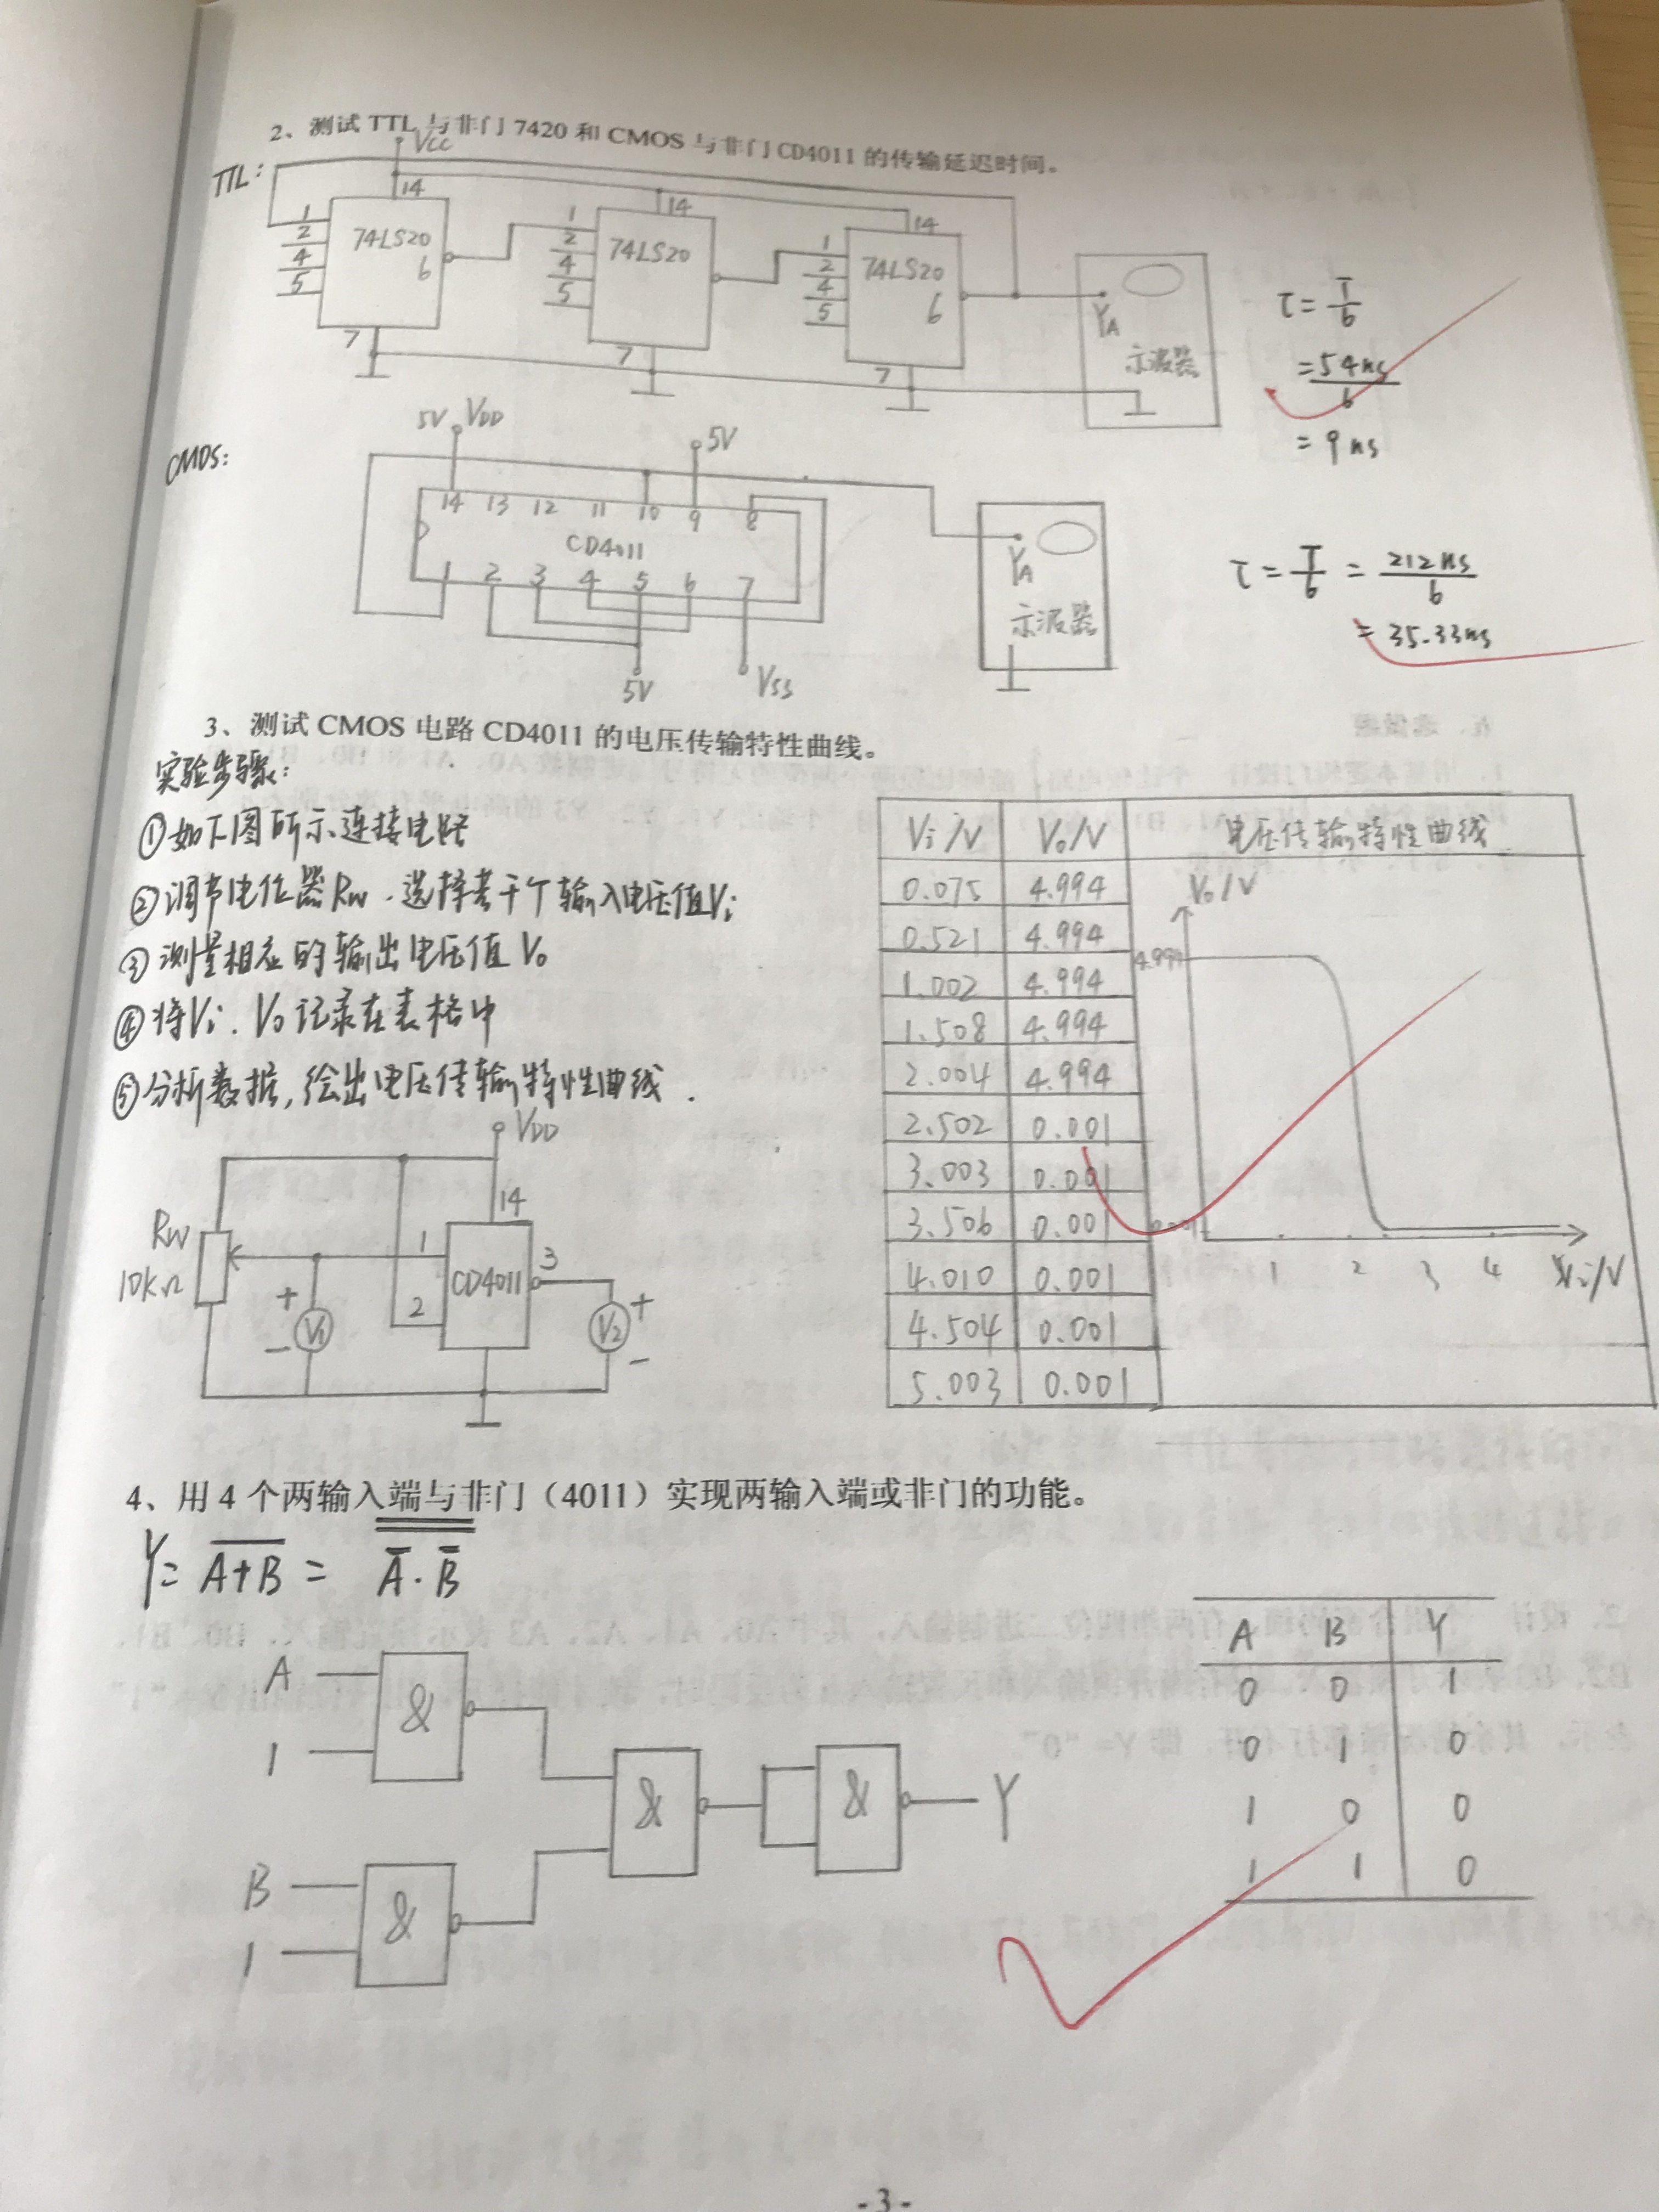 2、测试 TTL 与非门 7420 和 CMOS 与非门 CD4011 的传输延迟时间。
TTL:
Vcc
14
14
14
1
2
4
5
74LS20
6
7
1
2
4
5
74LS20
7
1
2
4
5
74LS20
6
7
YA
示波器
τ = T/6
= 54ns/6
= 9ns
CMOS:
5V VDD
5V
14 13 12 11 10 9 8
CD4011
1 2 3 4 5 6 7
5V
VSS
YA
示波器
τ = T/6 = 212ns/6
= 35.33ns
3、测试 CMOS 电路 CD4011 的电压传输特性曲线。
实验步骤:
①如下图所示连接电路
②调节电位器Rw.选择若干个输入电压值Vi
③测量相应的输出电压值V0
④将Vi.V0记录在表格中
⑤分析数据,绘出电压传输特性曲线.
Vi/V V0/V 电压传输特性曲线
0.075 4.994
0.521 4.994
1.002 4.994
1.508 4.994
2.004 4.994
2.502 0.001
3.003 0.001
3.506 0.001
4.010 0.001
4.504 0.001
5.003 0.001
V0/V
4.994
0.001
1 2 3 4 Vi/V
VDD
14
Rw
10kΩ
1
2
CD4011
3
+
V1
-
+
V2
-
4、用 4 个两输入端与非门（4011）实现两输入端或非门的功能。
Y= \overline{A+B} = \overline{\overline{\overline{A}·\overline{B}}}
A
1
&
B
1
&
&
&
Y
A B Y
0 0 1
0 1 0
1 0 0
1 1 0
- 3 -